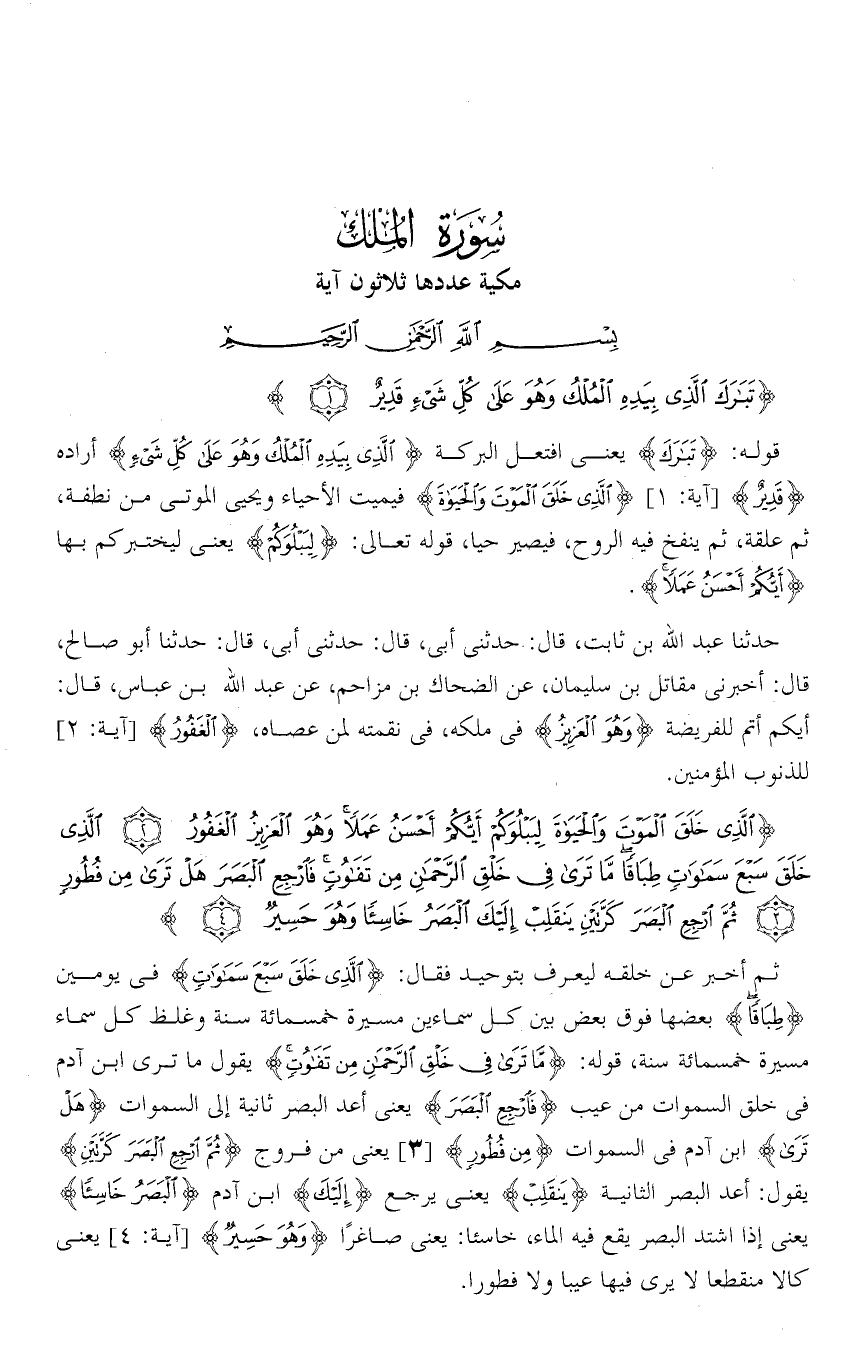 سُورَةُ المُلكِ
مكية عددها ثلاثون آية
بِسْمِ ٱللَّهِ ٱلرَّحْمَٰنِ ٱلرَّحِيمِ
﴿تَبَٰرَكَ ٱلَّذِى بِيَدِهِ ٱلْمُلْكُ وَهُوَ عَلَىٰ كُلِّ شَىْءٍ قَدِيرٌ ۝١ ﴾
قوله: ﴿تَبَٰرَكَ﴾ يعنى افتعل البركة ﴿ ٱلَّذِى بِيَدِهِ ٱلْمُلْكُ وَهُوَ عَلَىٰ كُلِّ شَىْءٍ﴾ أراده
﴿قَدِيرٌ﴾ [آية: ١] ﴿ٱلَّذِى خَلَقَ ٱلْمَوْتَ وَٱلْحَيَوٰةَ﴾ فيميت الأحياء ويحيى الموتى من نطفة،
ثم علقة، ثم ينفخ فيه الروح، فيصير حيا، قوله تعالى: ﴿لِيَبْلُوَكُمْ﴾ يعنى ليختبركم بها
﴿أَيُّكُمْ أَحْسَنُ عَمَلًاۚ﴾.
حدثنا عبد الله بن ثابت، قال: حدثنى أبى، قال: حدثنى أبى، قال: حدثنا أبو صالح،
قال: أخبرنى مقاتل بن سليمان، عن الضحاك بن مزاحم، عن عبد الله بن عباس، قال:
أيكم أتم للفريضة ﴿وَهُوَ ٱلْعَزِيزُ﴾ فى ملكه، فى نقمته لمن عصاه، ﴿ٱلْغَفُورُ﴾ [آية: ٢]
للذنوب المؤمنين.
﴿ٱلَّذِى خَلَقَ ٱلْمَوْتَ وَٱلْحَيَوٰةَ لِيَبْلُوَكُمْ أَيُّكُمْ أَحْسَنُ عَمَلًاۚ وَهُوَ ٱلْعَزِيزُ ٱلْغَفُورُ ۝٢ ٱلَّذِى
خَلَقَ سَبْعَ سَمَٰوَٰتٍ طِبَاقًاۖ مَّا تَرَىٰ فِى خَلْقِ ٱلرَّحْمَٰنِ مِن تَفَٰوُتٍۚ فَٱرْجِعِ ٱلْبَصَرَ هَلْ تَرَىٰ مِن فُطُورٍ
۝٣ ثُمَّ ٱرْجِعِ ٱلْبَصَرَ كَرَّتَيْنِ يَنقَلِبْ إِلَيْكَ ٱلْبَصَرُ خَاسِئًا وَهُوَ حَسِيرٌ ۝٤ ﴾
ثم أخبر عن خلقه ليعرف بتوحيد فقال: ﴿ٱلَّذِى خَلَقَ سَبْعَ سَمَٰوَٰتٍ﴾ فى يومين
﴿طِبَاقًاۖ﴾ بعضها فوق بعض بين كل سماءين مسيرة خمسمائة سنة وغلظ كل سماء
مسيرة خمسمائة سنة، قوله: ﴿مَّا تَرَىٰ فِى خَلْقِ ٱلرَّحْمَٰنِ مِن تَفَٰوُتٍۚ﴾ يقول ما ترى ابن آدم
فى خلق السموات من عيب ﴿فَٱرْجِعِ ٱلْبَصَرَ﴾ يعنى أعد البصر ثانية إلى السموات ﴿هَلْ
تَرَىٰ﴾ ابن آدم فى السموات ﴿مِن فُطُورٍ﴾ [٣] يعنى من فروج ﴿ثُمَّ ٱرْجِعِ ٱلْبَصَرَ كَرَّتَيْنِ﴾
يقول: أعد البصر الثانية ﴿يَنقَلِبْ﴾ يعنى يرجع ﴿إِلَيْكَ﴾ ابن آدم ﴿ٱلْبَصَرُ خَاسِئًا﴾
يعنى إذا اشتد البصر يقع فيه الماء، خاسئا: يعنى صاغرًا ﴿وَهُوَ حَسِيرٌ﴾ [آية: ٤] يعنى
كالا منقطعا لا يرى فيها عيبا ولا فطورا.